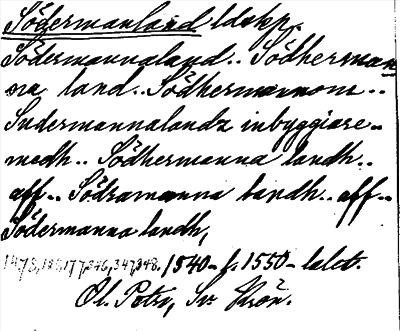 Södermanland ldskp.
Södermannaland.. Södherman
na land.. Södhermannom..
Sudermannalandz inbyggiare..
medh.. Södhermanna landh..
aff.. Södramanna landh.. aff..
Södermanna landh,
1540- f. 1550- talet.
Ol. Petri, Sv. Krön.